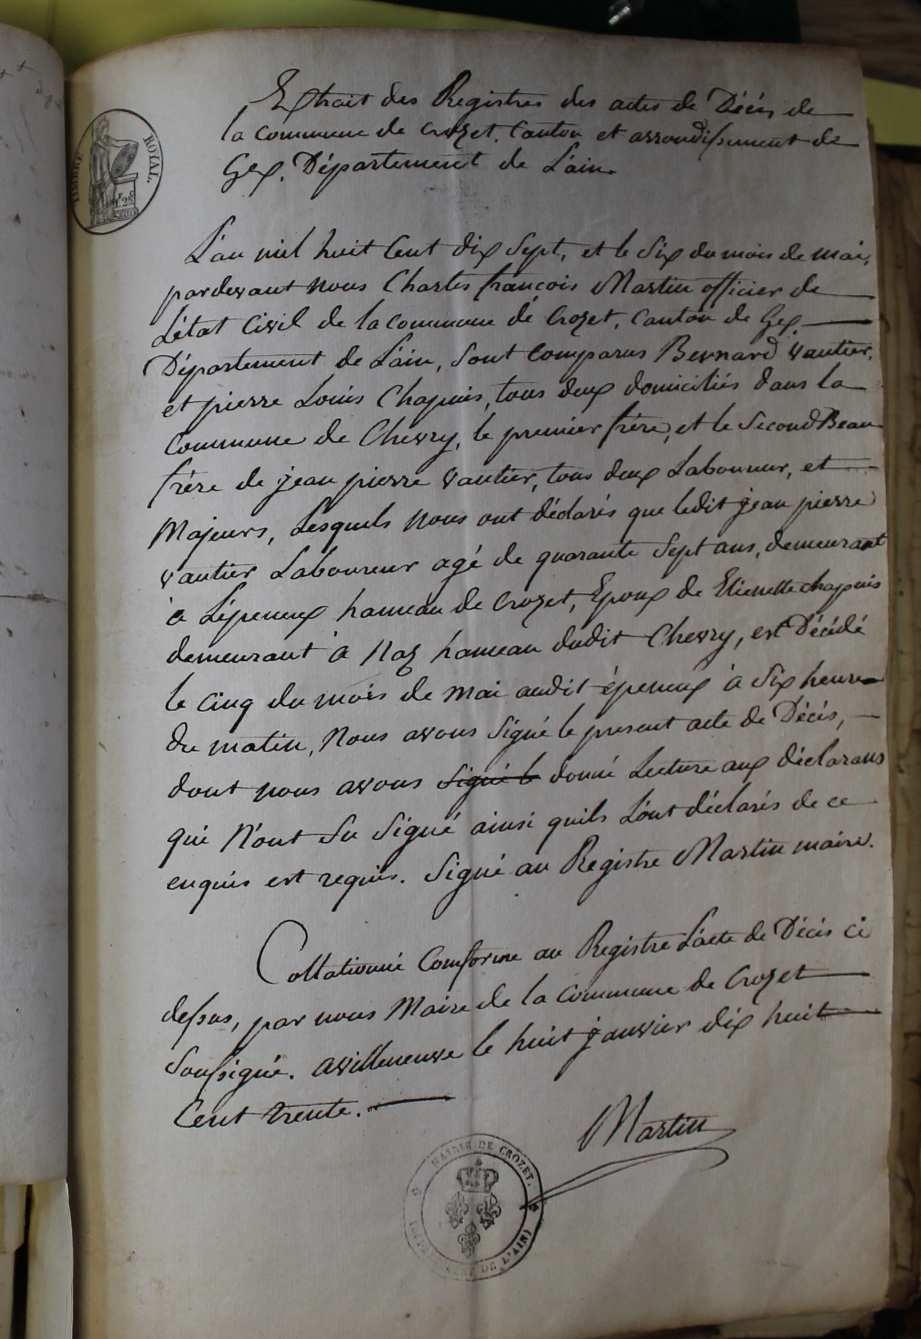 TIMBRE ROYAL.
Extrait des Registres des actes de Décès de
la commune de crozet. Canton et arrondissement de
Gex. Département de L'ain.
L'an mil huit Cent dix Sept, et le Six du mois de mai,
pardevant nous Charles françois Martin officier de
L'état Civil de la commune de Crozet, canton de Gex.
Département de L'ain, Sont Comparus Bernard vautier,
et pierre Louis Chapuis, tous deux domiciliés dans la
Commune de Chevry, le premier frère, et le Second Beau
frère de jean pierre vautier, tous deux Laboureur, et
Majeurs, Lesquels nous ont déclarés que ledit jean pierre
vautier Laboureur agé de quarante Sept ans, demeurant
à L'épeneux hameau de Crozet, Epoux de Etienette chapuis
demeurant à Naz hameau dudit Chevry, est Décédé
le cinq du mois de mai audit épeneux à Six heures
du matin, Nous avons Signé le present acte de Décès,
dont nous avons signé le donné Lecture aux déclarans
qui N'ont Su Signé ainsi quils L'ont déclarés de ce
enquis est requis. Signé au Registre Martin maire.
Collationné Comforme au Registre L'acte de Décès ci
dessus, par nous Maire de la Commune de Crozet
Soussigné. avilleneuve le huit janvier dix huit
Cent trente.
Martin
MAIRIE DE CROZET.
DE L'AIN)